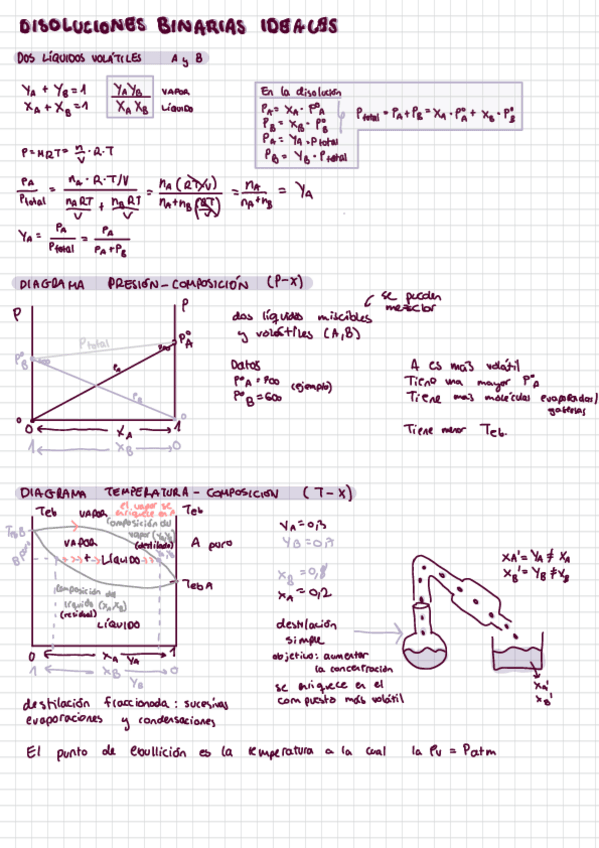 DISOLUCIONES BINARIAS IDEALES
DOS LÍQUIDOS VOLÁTILES A y B
YA + YB = 1
YA YB VAPOR
XA + XB = 1
XA XB LÍQUIDO
En la disolución
PA = XA · P°A
PB = XB · P°B
PA = YA · Ptotal
PB = YB · Ptotal
Ptotal = PA + PB = XA · P°A + XB · P°B
P = MRT = n/V · R · T
PA/Ptotal = nA · R · T/V / nART/V + nBRT/V = nA (RT/V) / nA+nB (RT/V) = nA / nA+nB = YA
YA = PA/Ptotal = PA / PA+PB
DIAGRAMA PRESIÓN-COMPOSICIÓN (P-X)
P
P
Ptotal
P°A
P°B
PA
PB
0
0
0 XA 1
1 XB 0
se pueden
mezclar
dos líquidos miscibles
y volátiles (A, B)
Datos
P°A = 700 (ejemplo)
P°B = 600
A es más volátil
Tiene una mayor P°A
Tiene más moléculas evaporadas/
gaseosas
Tiene menor Teb.
DIAGRAMA TEMPERATURA-COMPOSICIÓN (T-X)
Teb
VAPOR
el vapor se
enriquece en A
Teb
composición del
vapor (YA, YB)
(destilado)
TebB
B puro
VAPOR
+
LÍQUIDO
A puro
TebA
composición del
líquido (XA, XB)
(residual)
LÍQUIDO
0 XA YA 1
1 XB 0
YB
YA = 0,3
YB = 0,7
XB = 0,8
XA = 0,2
destilación
simple
objetivo: aumentar
la concentración
se enriquece en el
compuesto más volátil
XA' = YA ≠ XA
XB' = YB ≠ XB
XA'
XB'
destilación fraccionada: sucesivas
evaporaciones y condensaciones
El punto de ebullición es la temperatura a la cual la Pv = Patm